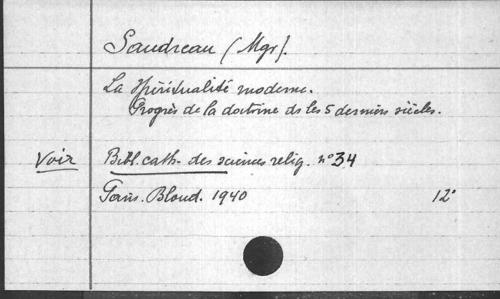 Saudreau (Mgr).
La spiritualité moderne.
Progrès de la doctrine ds les 5 derniers siècles.
Voir Bibl. cath. des sciences relig. n° 34
Paris. Bloud. 1940 12°